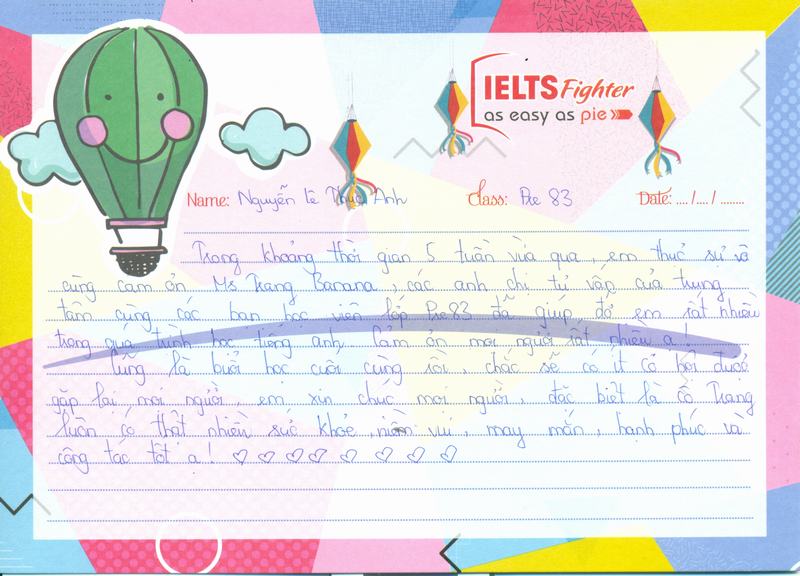 IELTS Fighter
as easy as pie
Name: Nguyễn Lê Thục Anh Class: Pre 83 Date: .... /.... / ........
Trong khoảng thời gian 5 tuần vừa qua, em thực sự vô
cùng cảm ơn Ms Trang Banana, các anh chị tư vấn của trung
tâm cùng các bạn học viên lớp Pre 83 đã giúp đỡ em rất nhiều
trong quá trình học tiếng anh. Cảm ơn mọi người rất nhiều ạ!
Cũng là buổi học cuối cùng rồi, chắc sẽ có ít cơ hội được
gặp lại mọi người, em xin chúc mọi người, đặc biệt là cô Trang
luôn có thật nhiều sức khỏe, niềm vui, may mắn, hạnh phúc và
công tác tốt ạ! ♡ ♡ ♡ ♡ ♡ ♡ ♡ ♡